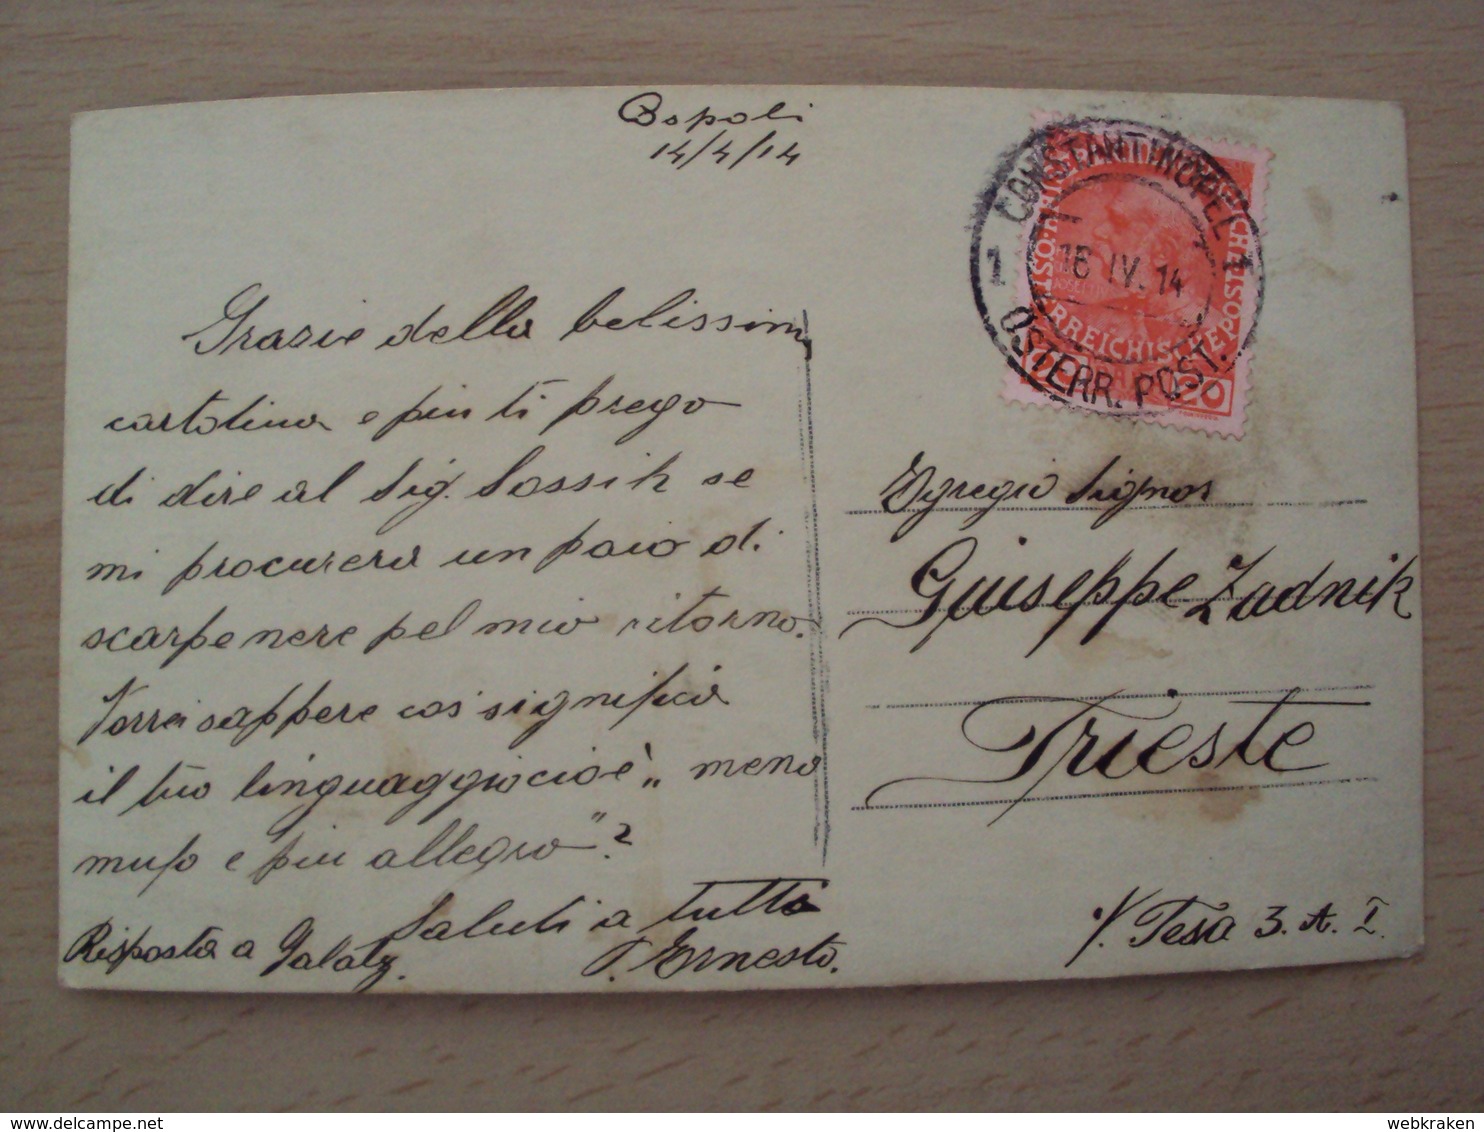 Bopoli
14/4/14
Grazie della belissim
cartolina e piu ti prego
di dire al Sig. Sossik se
mi procurera un paio di
scarpe nere pel mio ritorno.
Vorrei sappere cos significa
il tuo linguaggio cioè „ meno
muso e piu allegro"?
Saluti a tutti
Ernesto.
Risposta a Galatz.
CONSTANTINOPEL
1 1
16 IV. 14
ÖSTERR. POST.
20
Egregio Signor
Giuseppe Zadnik
Trieste
V. Tesa 3. A. I.
webkraken